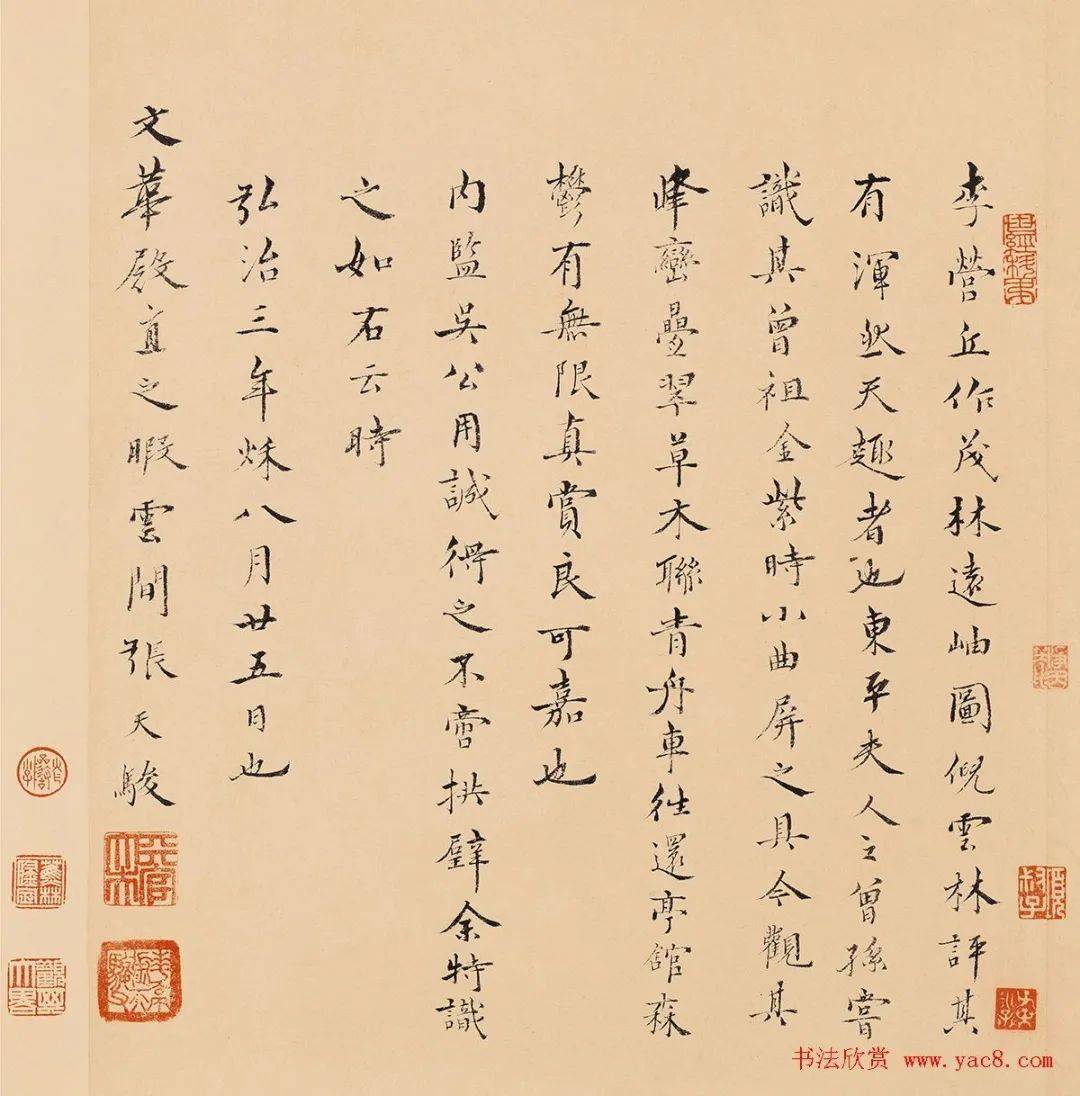 李營丘作茂林遠岫圖倪雲林評其
有渾然天趣者也東平夫人之曾孫嘗
識其曾祖金紫時小曲屏之具今觀其
峰巒疊翠草木聯青舟車往還亭館森
鬱有無限真賞良可嘉也
內監吳公用誠得之不啻拱璧余特識
之如右云時
弘治三年秌八月廿五日也
文華殿直之暇雲間張天駿
书法欣赏 www.yac8.com